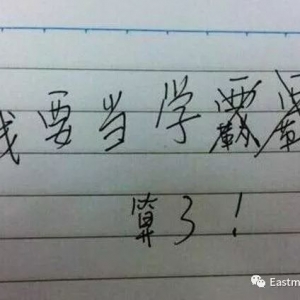 我要当学
算了！
Eastm